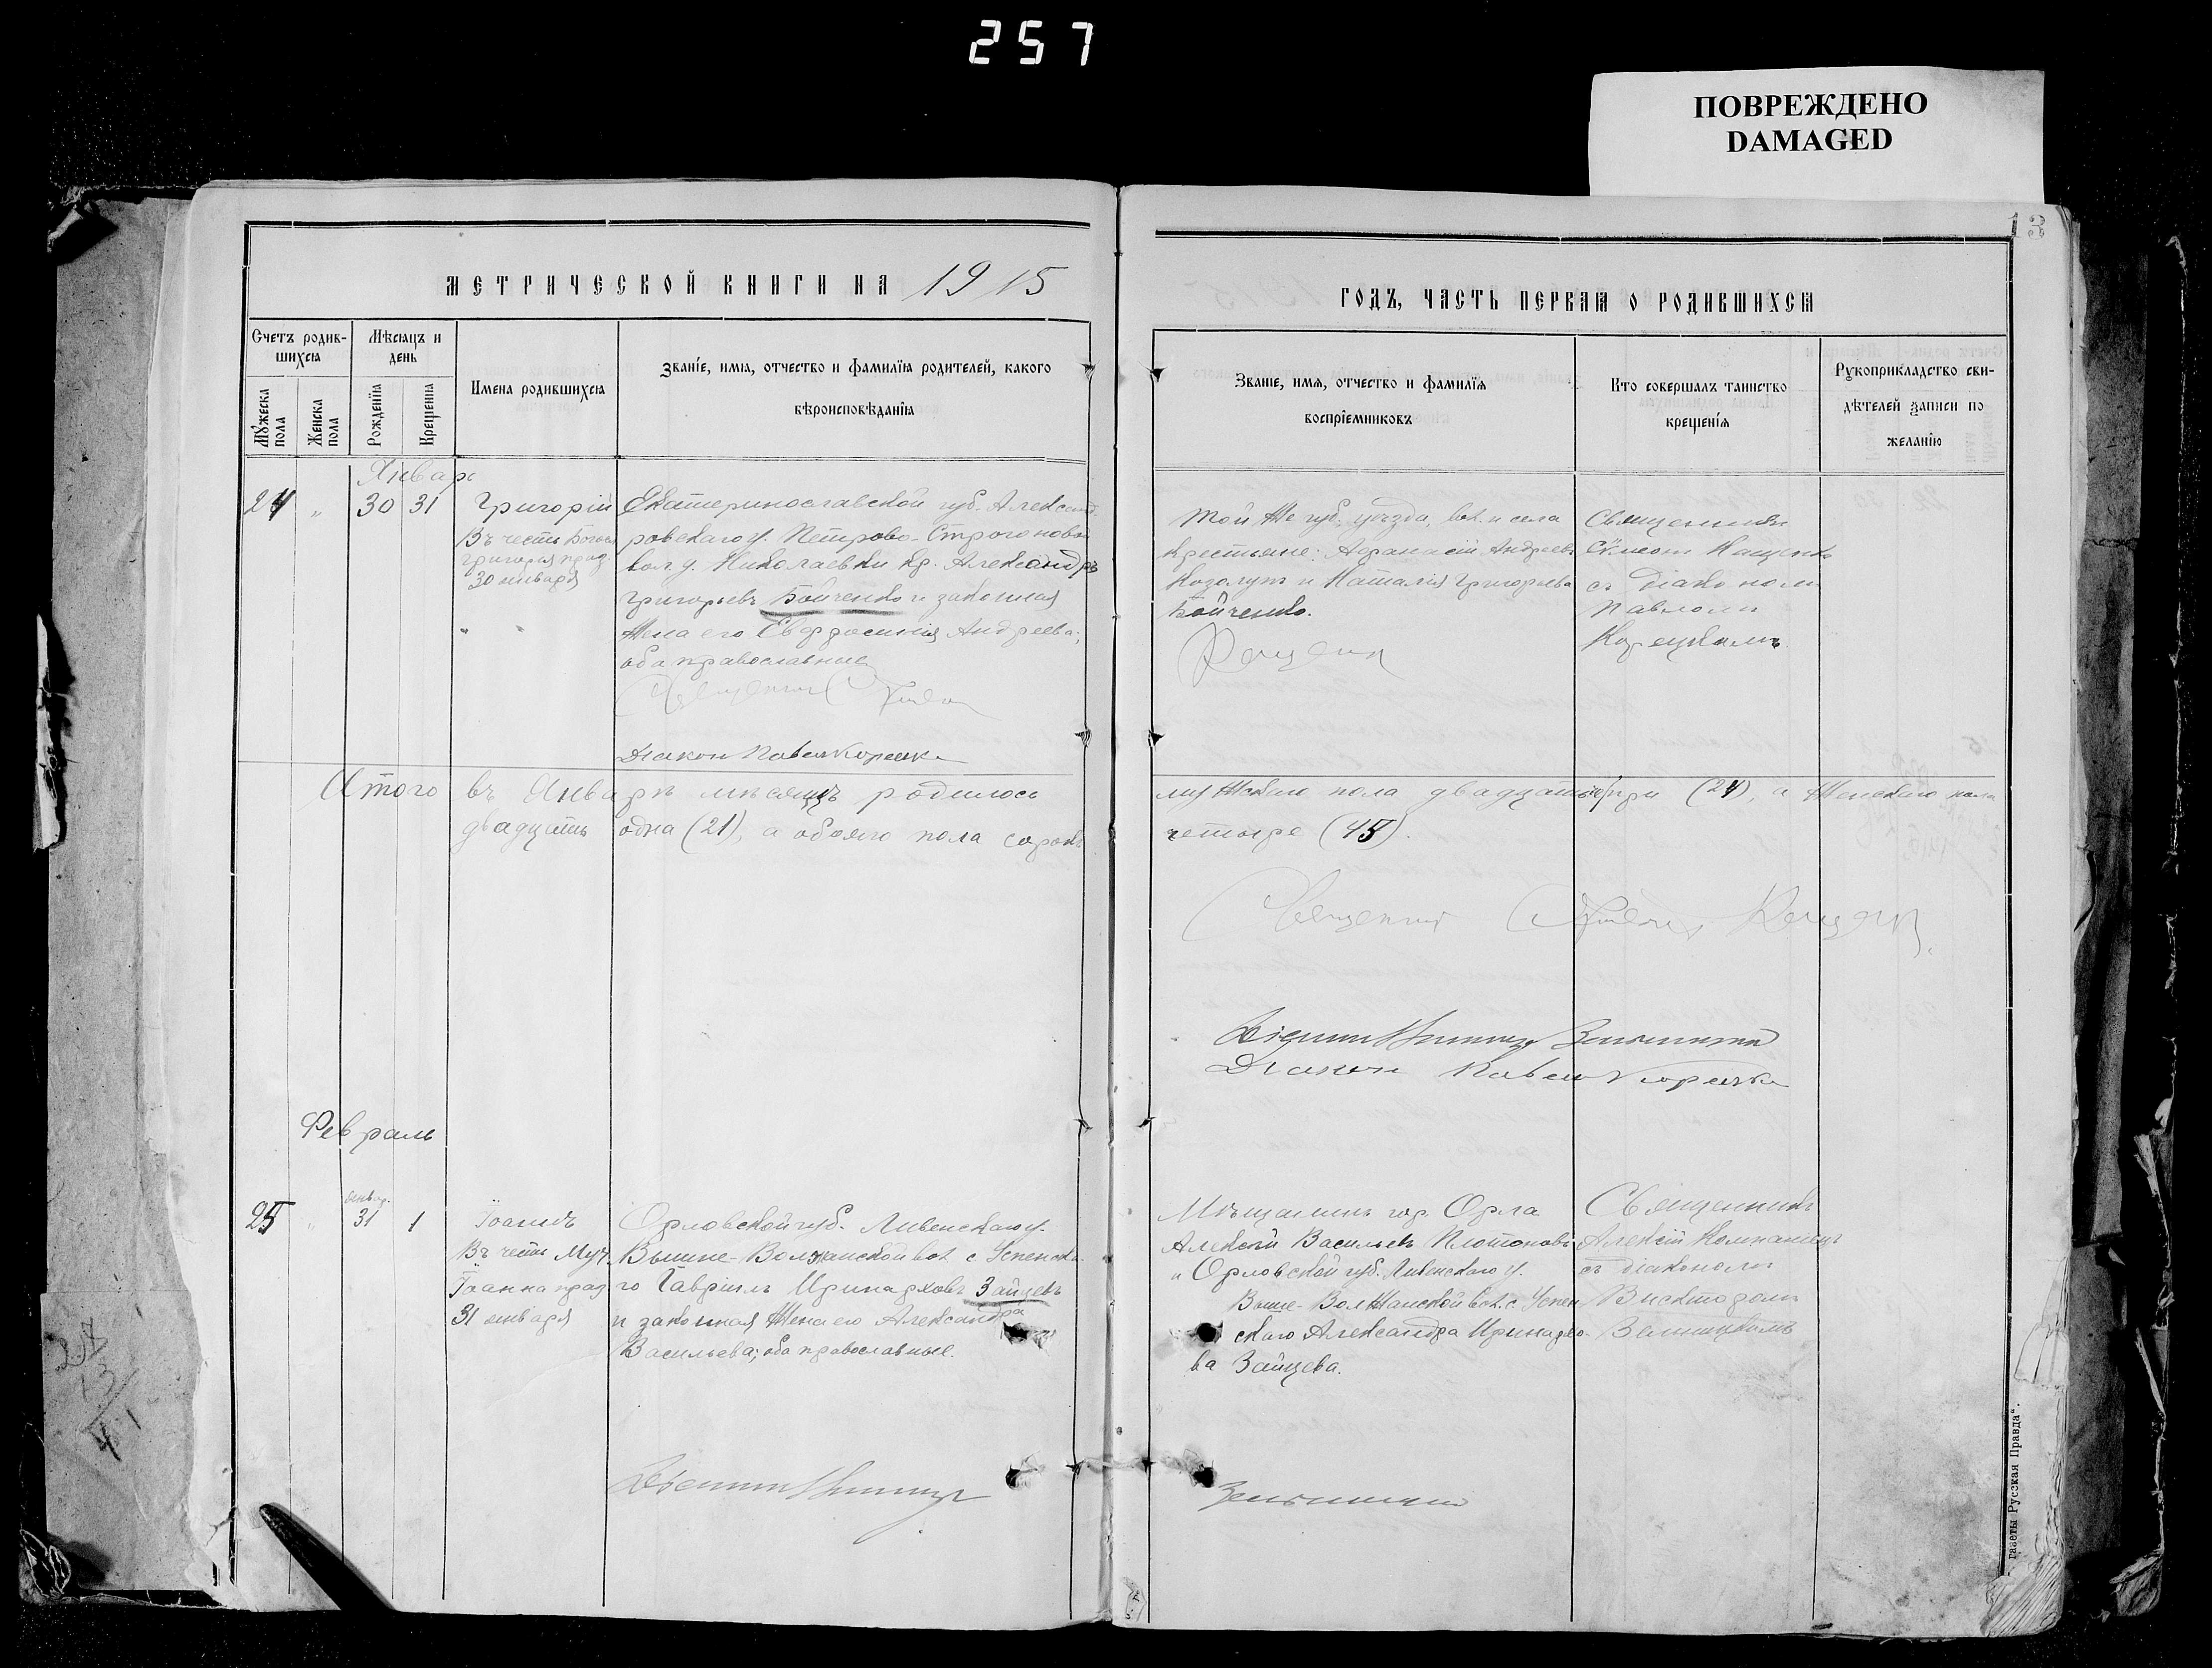 257
ПОВРЕЖДЕНО
DAMAGED
13
МЕТРИЧЕСКОЙ КНИГИ НА 1915
ГОДЪ, ЧАСТЬ ПЕРВАЯ О РОДИВШИХСЯ
Счетъ родив-
шихся
Мѣсяцъ и
день
Мужеска
пола
Женска
пола
Рожденія
Крещенія
Имена родившихся
Званіе, имя, отчество и фамилія родителей, какого
вѣроисповѣданія
Званіе, имя, отчество и фамилія
воспріемниковъ
Кто совершалъ таинство
крещенія
Рукоприкладство сви-
дѣтелей записи по
желанію
Январь
24 " 30 31
Григорій
Въ честь
Григорія празд.
30 января
Екатеринославской губ. Александ-
ровскаго у. Петрово-Строгоновой
вол. д. Николаевки кр. Александръ
Григорьевъ Бойченко и законная
жена его Евфросинія Андреева;
оба православные
Священникъ
Діаконъ Павелъ Корецкій
Той же губ., уѣзда, вол. и села
крестьяне: Афанасій Андреевъ
и Наталія Григорьева
Бойченко.
Священникъ
Сѵмеонъ
съ діакономъ
Павломъ
Корецкимъ
Итого въ Январѣ мѣсяцѣ родилось
мужского пола двадцать (24), а женского пола
двадцать одна (21), а обоего пола сорокъ
четыре (45).
Священникъ
Діаконъ Павелъ Корецкій
Февраль
25 " январ. 31 1
Іоаннъ
Въ честь Муч.
Іоанна празд
31 января
Орловской губ. Ливенскаго у.
Вышне-Волжанской вол. с. Успенска-
го Гавріилъ Иринарховъ Зайцевъ
и законная жена его Александра
Васильева; оба православные.
Мѣщанинъ гор. Орла
Алексѣй Васильевъ Платоновъ
и Орловской губ. Ливенскаго у.
Выше-Волжанской вол. с. Успен
скаго Александра Иринархо-
ва Зайцева.
Священникъ
Алексій Компаніецъ
съ діакономъ
Викторомъ
газеты Русская Правда“.